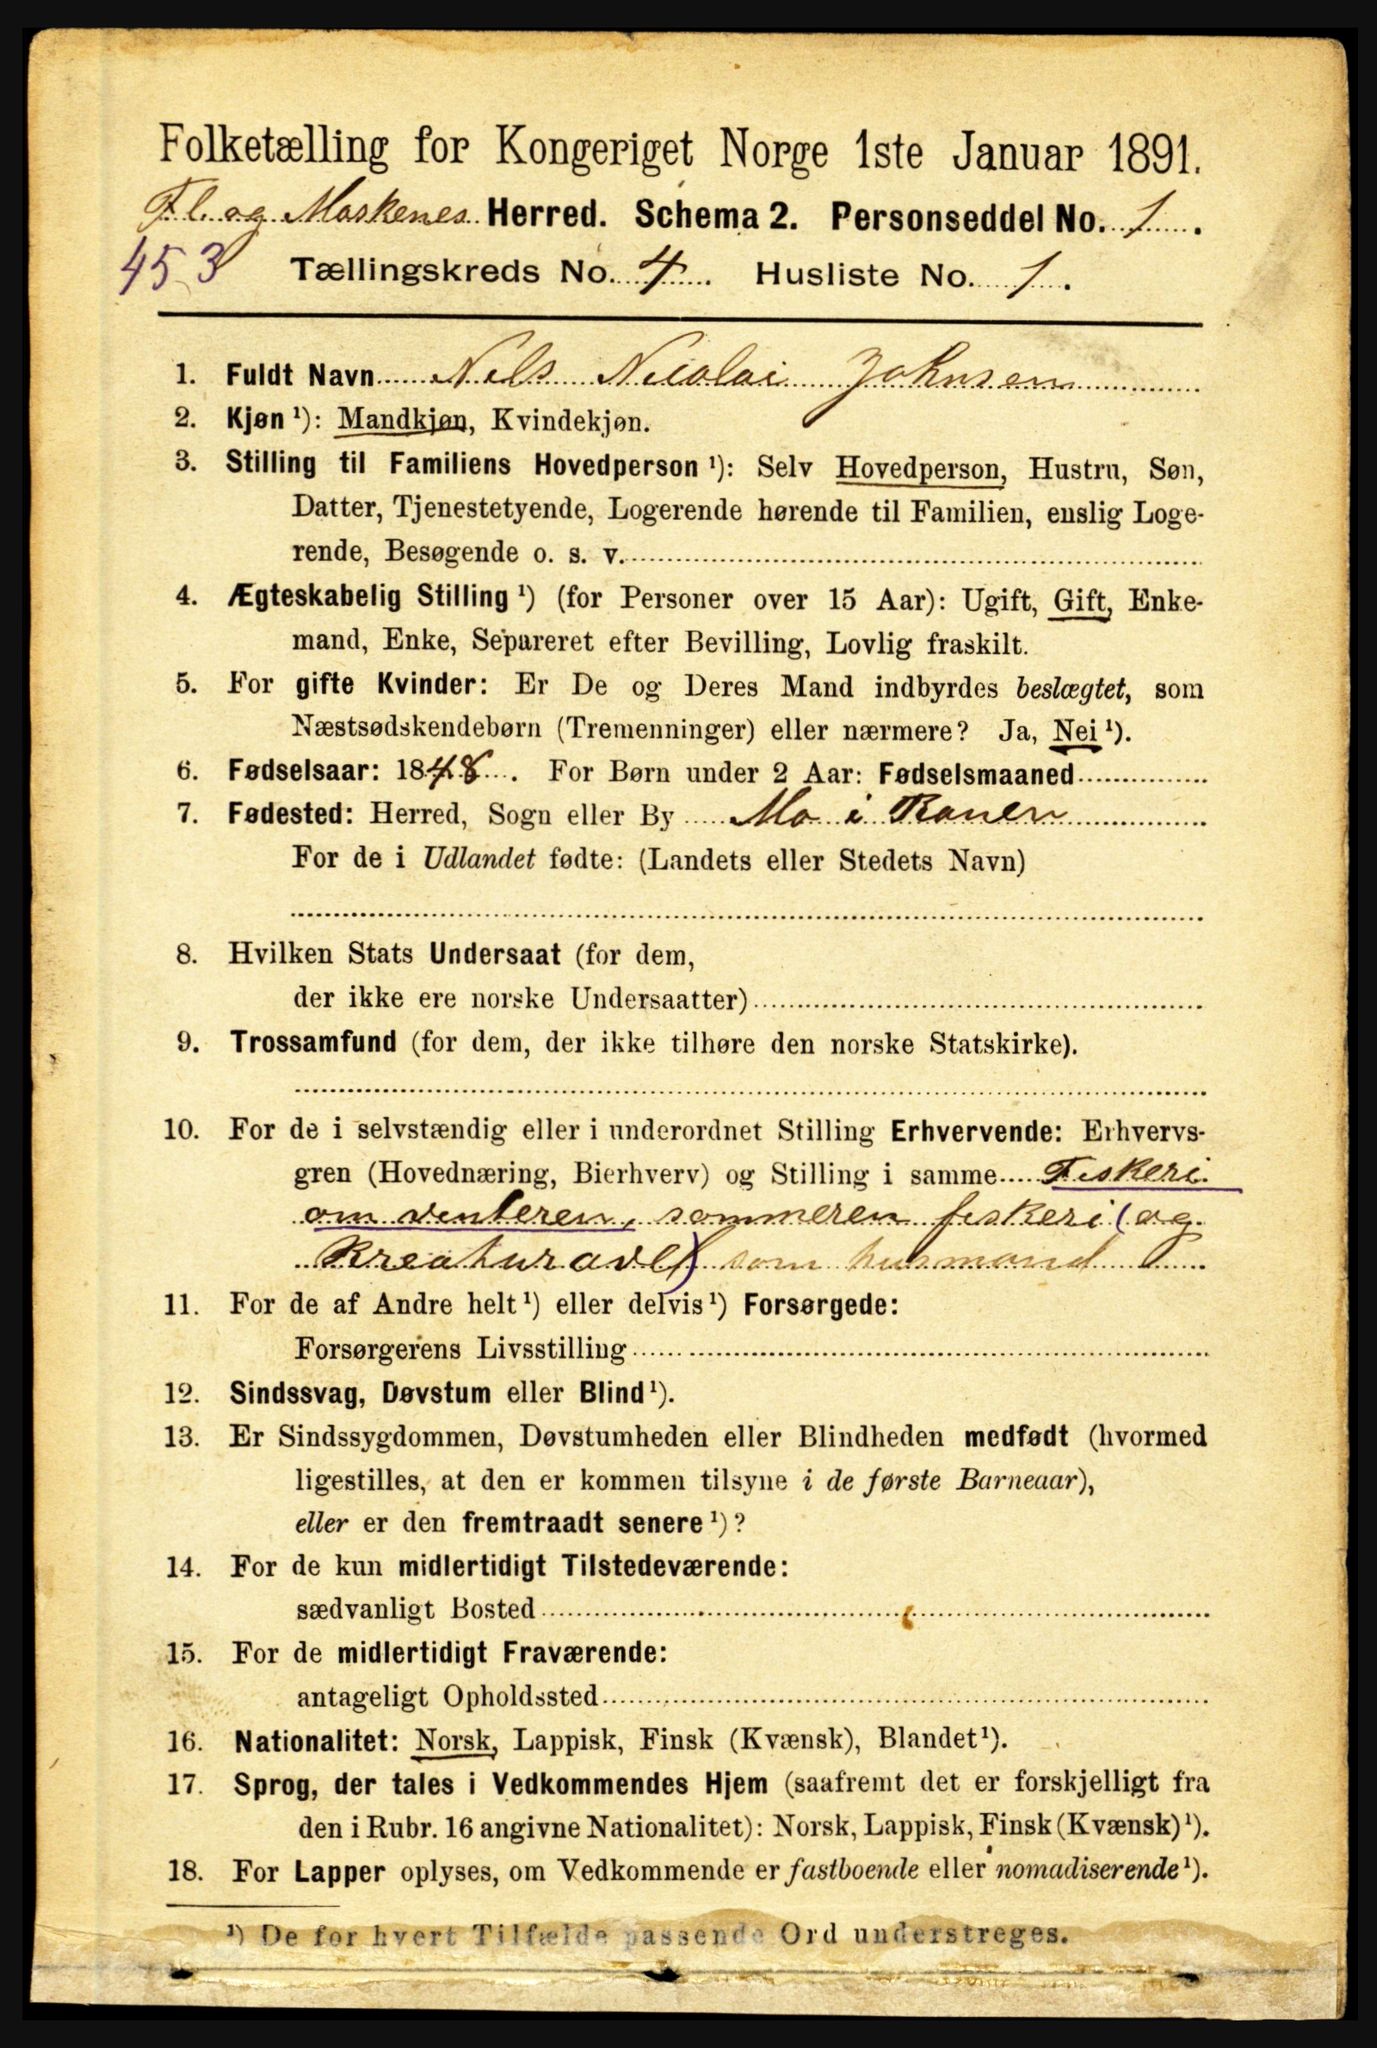 Folketælling for Kongeriget Norge 1ste Januar 1891.
Fl. og Moskenes Herred. Schema 2. Personseddel No. 1.
453 Tællingskreds No. 4. Husliste No. 1.
1. Fuldt Navn Nils Nicolai Johnsen
2. Kjøn ¹): Mandkjøn, Kvindekjøn.
3. Stilling til Familiens Hovedperson ¹): Selv Hovedperson, Hustru, Søn,
Datter, Tjenestetyende, Logerende hørende til Familien, enslig Loge-
rende, Besøgende o. s. v.
4. Ægteskabelig Stilling ¹) (for Personer over 15 Aar): Ugift, Gift, Enke-
mand, Enke, Separeret efter Bevilling, Lovlig fraskilt.
5. For gifte Kvinder: Er De og Deres Mand indbyrdes beslægtet, som
Næstsødskendebørn (Tremenninger) eller nærmere? Ja, Nei ¹).
6. Fødselsaar: 1848. For Børn under 2 Aar: Fødselsmaaned
7. Fødested: Herred, Sogn eller By Mo i Ranen
For de i Udlandet fødte: (Landets eller Stedets Navn)
8. Hvilken Stats Undersaat (for dem,
der ikke ere norske Undersaatter)
9. Trossamfund (for dem, der ikke tilhøre den norske Statskirke).
10. For de i selvstændig eller i underordnet Stilling Erhvervende: Erhvervs-
gren (Hovednæring, Bierhverv) og Stilling i samme Fiskeri
om venteren, sommeren fiskeri (og
Kreaturavl) som husmand
11. For de af Andre helt ¹) eller delvis ¹) Forsørgede:
Forsørgerens Livsstilling
12. Sindssvag, Døvstum eller Blind ¹).
13. Er Sindssygdommen, Døvstumheden eller Blindheden medfødt (hvormed
ligestilles, at den er kommen tilsyne i de første Barneaar),
eller er den fremtraadt senere ¹)?
14. For de kun midlertidigt Tilstedeværende:
sædvanligt Bosted
15. For de midlertidigt Fraværende:
antageligt Opholdssted
16. Nationalitet: Norsk, Lappisk, Finsk (Kvænsk), Blandet ¹).
17. Sprog, der tales i Vedkommendes Hjem (saafremt det er forskjelligt fra
den i Rubr. 16 angivne Nationalitet): Norsk, Lappisk, Finsk (Kvænsk) ¹).
18. For Lapper oplyses, om Vedkommende er fastboende eller nomadiserende ¹).
¹) De for hvert Tilfælde passende Ord understreges.